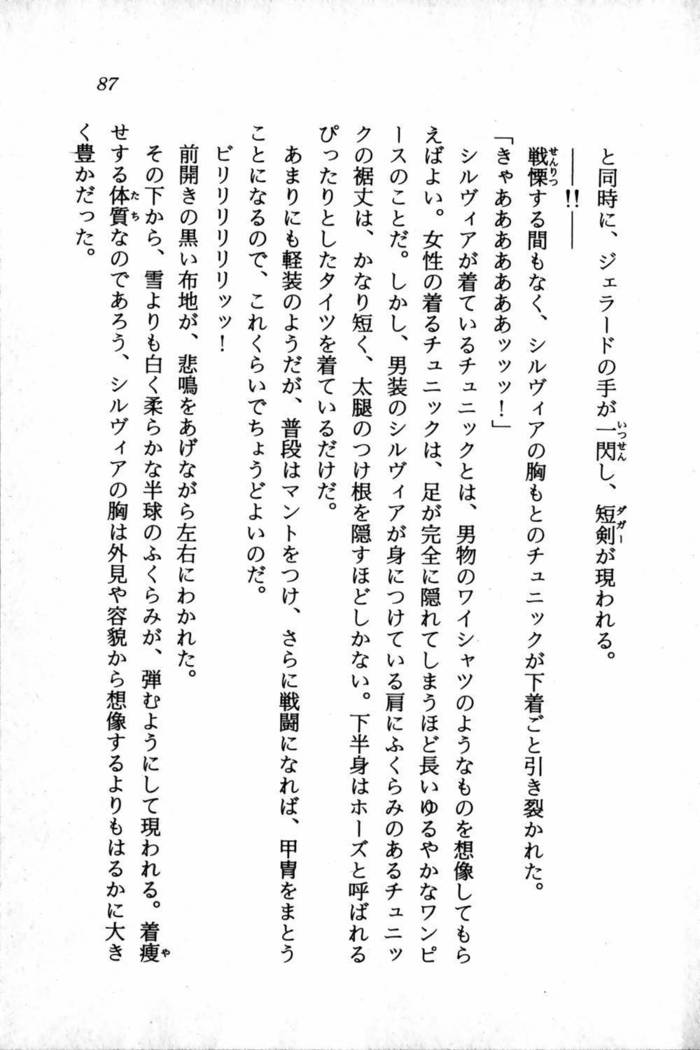 87
と同時に、ジェラードの手が一閃し、短剣が現われる。
――!!――
戦慄する間もなく、シルヴィアの胸もとのチュニックが下着ごと引き裂かれた。
「きゃああああああッッッ！」
シルヴィアが着ているチュニックとは、男物のワイシャツのようなものを想像してもら
えばよい。女性の着るチュニックは、足が完全に隠れてしまうほど長いゆるやかなワンピ
ースのことだ。しかし、男装のシルヴィアが身につけている肩にふくらみのあるチュニッ
クの裾丈は、かなり短く、太腿のつけ根を隠すほどしかない。下半身はホーズと呼ばれる
ぴったりとしたタイツを着ているだけだ。
あまりにも軽装のようだが、普段はマントをつけ、さらに戦闘になれば、甲冑をまとう
ことになるので、これくらいでちょうどよいのだ。
ビリリリリリリッッ！
前開きの黒い布地が、悲鳴をあげながら左右にわかれた。
その下から、雪よりも白く柔らかな半球のふくらみが、弾むようにして現われる。着痩
せする体質なのであろう、シルヴィアの胸は外見や容貌から想像するよりもはるかに大き
く豊かだった。